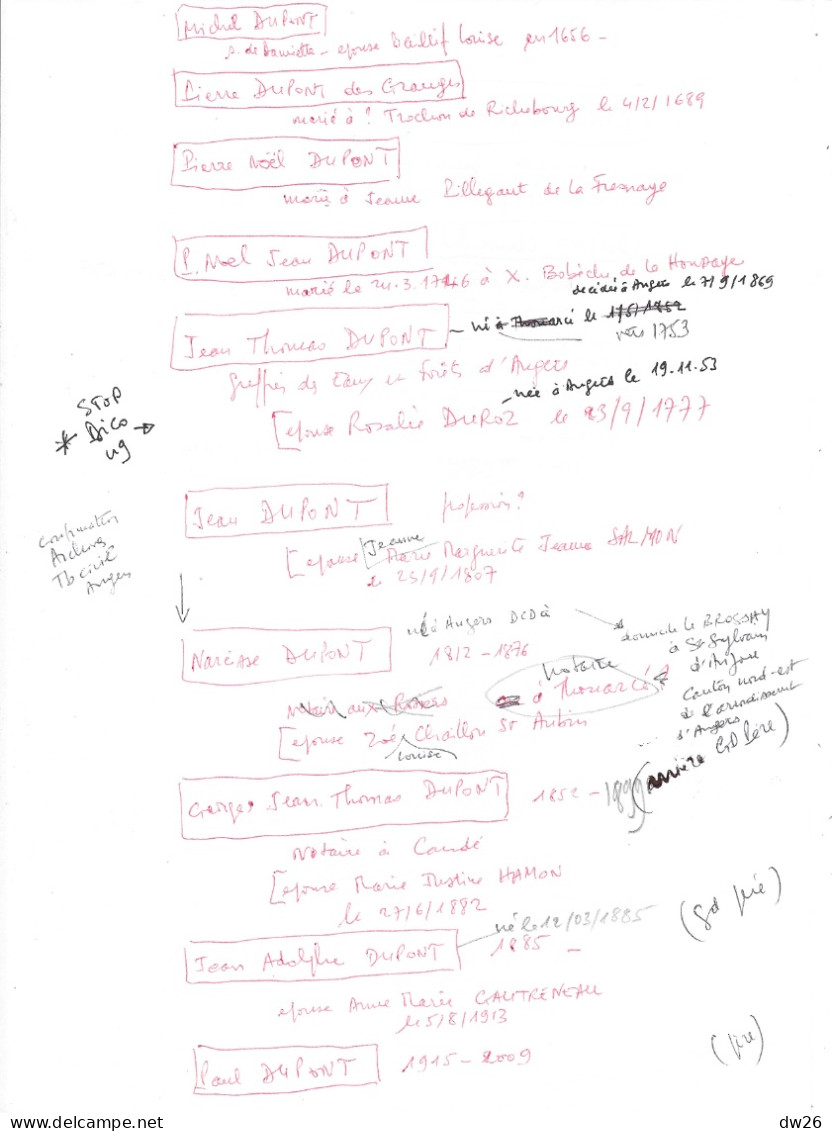 Michel DUPONT
épouse Louise en 1656 -
Pierre DUPONT des Granges
marié à ? Trochon de Richebourg le 4/2/1689
Pierre Noël DUPONT
marié à Jeanne de la Fresnaye
P. Noel Jean DUPONT
marié le 24.3.1746 à X. de la
décédé à Angers le 7/9/1869
Jean Thomas DUPONT
né à Thouarcé le
vers 1753
des Eaux et Forêts d'Angers
née à Angers le 19.11.53
[épouse Rosalie DUROZ le 23/9/1777
STOP
* Dico →
49
Jean DUPONT profession ?
Jeanne
[épouse Marie Marguerite Jeanne SALMON
le 23/9/1807
confirmation
Archives
Tb civil
Angers
né à Angers DCD à
Narcisse DUPONT 1812 - 1876
domicile le BROSSAY
à St Sylvain
d'Anjou
Canton nord-est
de l'arrondissement
d'Angers
notaire
à Thouarcé
[épouse Zoé Chaillou St Aubin
Louise
(arrière GD Père)
Georges Jean Thomas DUPONT 1852 - 1899
Notaire à Candé
[épouse Marie Justine HAMON
le 27/6/1882
né le 12/03/1885
(Gd père)
Jean Adolphe DUPONT 1885 -
épouse Anne Marie GAUTRENEAU
le 5/8/1913
Paul DUPONT 1915 - 2009
(père)
dw26